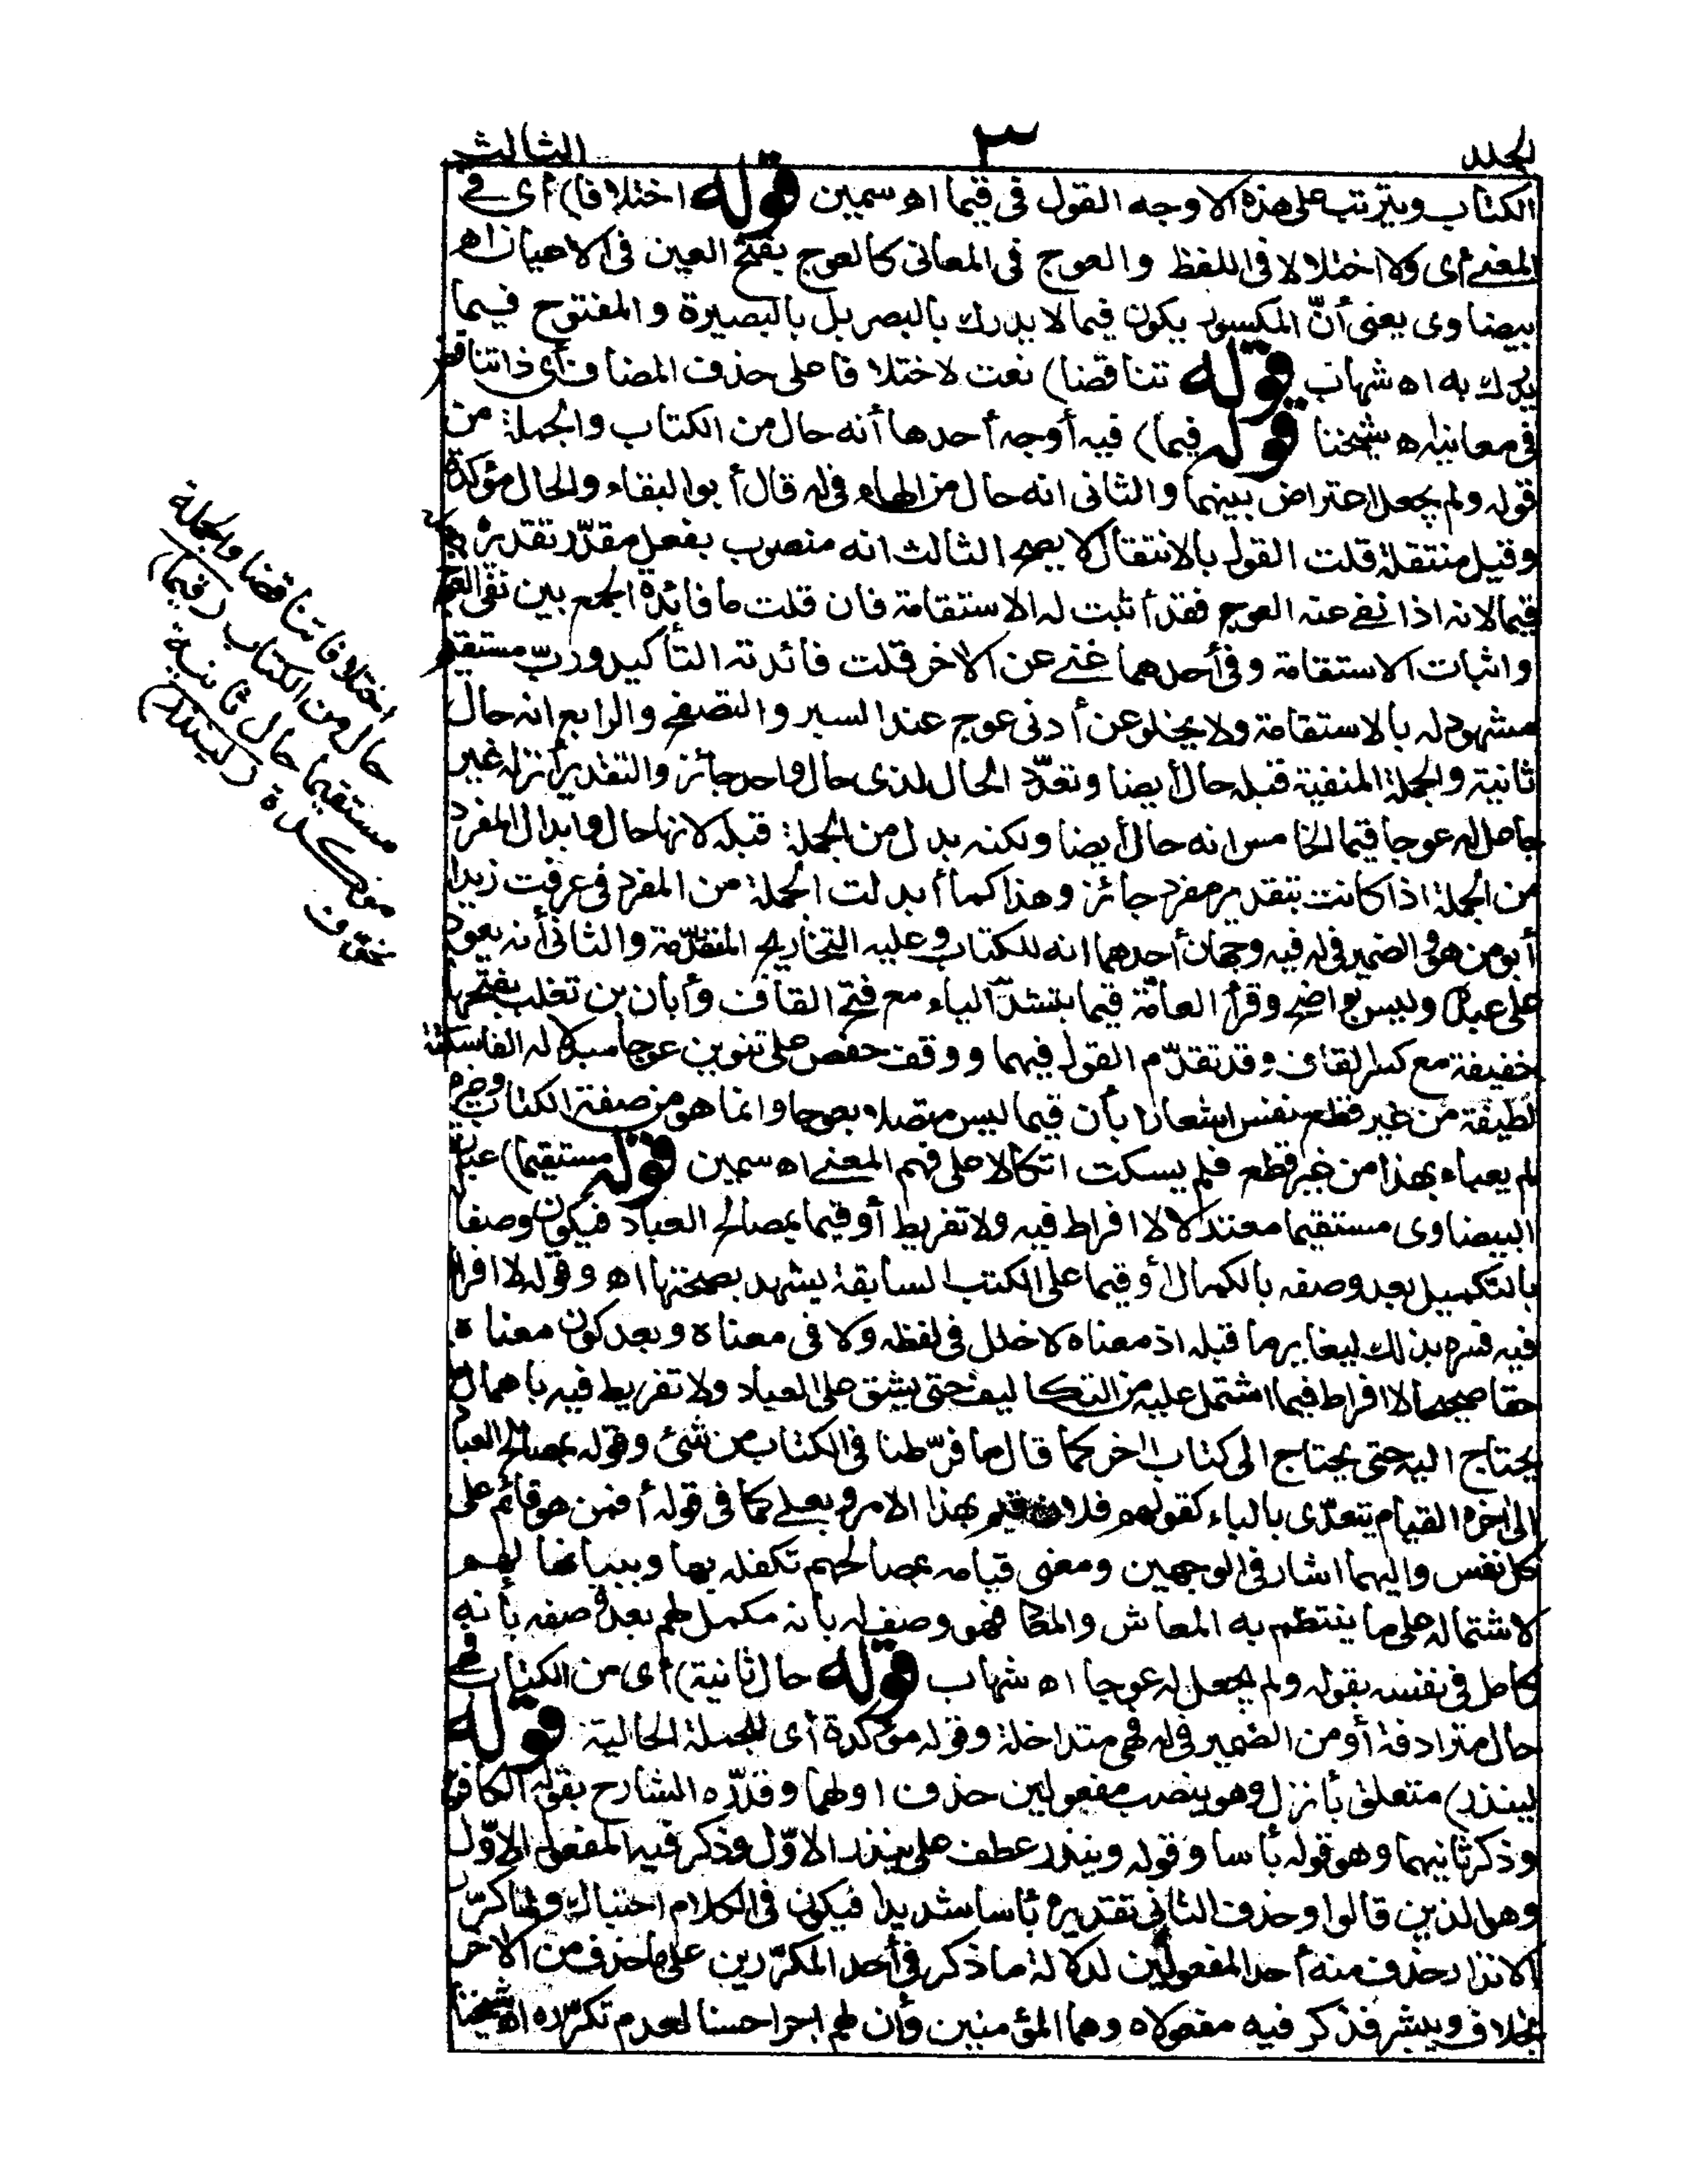 المجلد ٣ الثالث
الكتاب ويترتب على هذه الاوجه القول فى قيما اه سمين قوله اختلافا) أى فى
المعنى أى ولا اختلالا فى اللفظ والعوج فى المعانى كالعوج بفتح العين فى الاعيان اه
بيضاوى يعنى أنّ المكسور يكون فيما لا يدرك بالبصر بل بالبصيرة والمفتوح فيما
يدرك به اه شهاب قوله تناقضا) نعت لاختلافا على حذف المضاف أى ذا تناقض
فى معانيه اه شيخنا قوله قيما) فيه أوجه أحدها أنه حال من الكتاب والجملة من
قوله ولم يجعل اعتراض بينهما والثانى انه حال من الهاء فى له قال أبو البقاء والحال مؤكدة
وقيل منتقلة قلت القول بالانتقال لا يصح الثالث انه منصوب بفعل مقدّر تقديره جعله
قيما لانه اذا نفى عنه العوج فقد أثبت له الاستقامة فان قلت ما فائدة الجمع بين نفى العوج
واثبات الاستقامة وفى أحدهما غنى عن الاخر قلت فائدته التأكيد ورب مستقيم
مشهود له بالاستقامة ولا يخلو عن أدنى عوج عند السبر والتصفح والرابع انه حال
ثانية والجملة المنفية قبله حال أيضا وتعدّد الحال لذى حال واحد جائز والتقدير أنزله غير
جاعل له عوجا قيما الخامس انه حال أيضا ولكنه بدل من الجملة قبله لانها حال وابدال المفرد
من الجملة اذا كانت بتقدير مفرد جائز وهذا كما أبدلت الجملة من المفرد فى عرفت زيدا
أبو من هو والضمير فى له فيه وجهان أحدهما انه للكتاب وعليه التخاريج المتقدّمة والثانى أنه يعود
على عبده وليس بواضح وقرأ العامّة قيما بتشديد الياء مع فتح القاف وأبان بن تغلب بفتحها
خفيفة مع كسر القاف وقد تقدّم القول فيهما ووقف حفص على تنوين عوجا مبدلا له ألفا سكتة
لطيفة من غير قطع نفس اشعارا بأن قيما ليس متصلا بعوجا وانما هو من صفة الكتاب وغيره
لم يعبأ بهذا من غير قطع فلم يسكت اتكالا على فهم المعنى اه سمين قوله مستقيما) عبارة
البيضاوى مستقيما معتدلا لا افراط فيه ولا تفريط أو قيما بمصالح العباد فيكون وصفا
بالتكميل بعد وصفه بالكمال أو قيما على الكتب السابقة يشهد بصحتها اه وقوله لا افراط
فيه فسره بذلك ليغاير ما قبله اذ معناه لا خلل فى لفظه ولا فى معناه وبعد كون معناه
حقا صحيحا لا افراط فيما اشتمل عليه من التكاليف حتى يشق على العباد ولا تفريط فيه باهمال ما
يحتاج اليه حتى يحتاج الى كتاب اخر كما قال ما فرّطنا فى الكتاب من شئ وقوله بمصالح العباد
الى اخره القيام يتعدّى بالباء كقولهم فلان قيم بهذا الامر وبعلى كما فى قوله أفمن هو قائم على
كل نفس واليهما اشار فى الوجهين ومعنى قيامه بمصالحهم تكفله بها وببيانها لهم
لاشتماله على ما ينتظم به المعاش والمعاد فهو وصف له بانه مكمل لهم بعد وصفه بأنه
كامل فى نفسه بقوله ولم يجعل له عوجا اه شهاب قوله حال ثانية) أى من الكتاب فهى
حال مترادفة أو من الضمير فى له فهى متداخلة وقوله مؤكدة أى للجملة الحالية قوله
لينذر) متعلق بأنزل وهو ينصب مفعولين حذف اولهما وقدّره الشارح بقوله الكافرين
وذكر ثانيهما وهو قوله بأسا وقوله وينذر عطف على لينذر الاوّل وذكر فيه المفعول الاوّل
وهو الذين قالوا وحذف الثانى تقديره بأسا شديدا فيكون فى الكلام احتباك ولما كرّر
الانذار حذف منه أحد المفعولين لدلالة ما ذكر فى أحد المكرّرين على ما حذف من الاخر
بخلاف ويبشر فذكر فيه مفعولاه وهما المؤمنين وأن لهم اجرا حسنا لعدم تكرّره اه شيخنا
اختلافا تناقضا والجملة
حال من الكتاب (قيما)
مستقيما حال ثانية
مؤكدة (لينذر)
يخوف